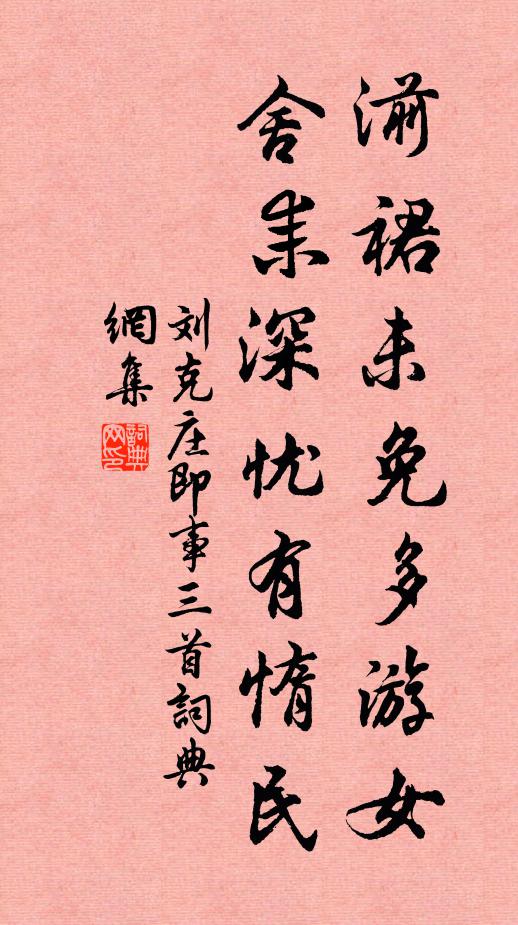 湔裙未免多游女
舍耒深忧有惰民
刘克庄即事三首詞典
網集
詞典網印